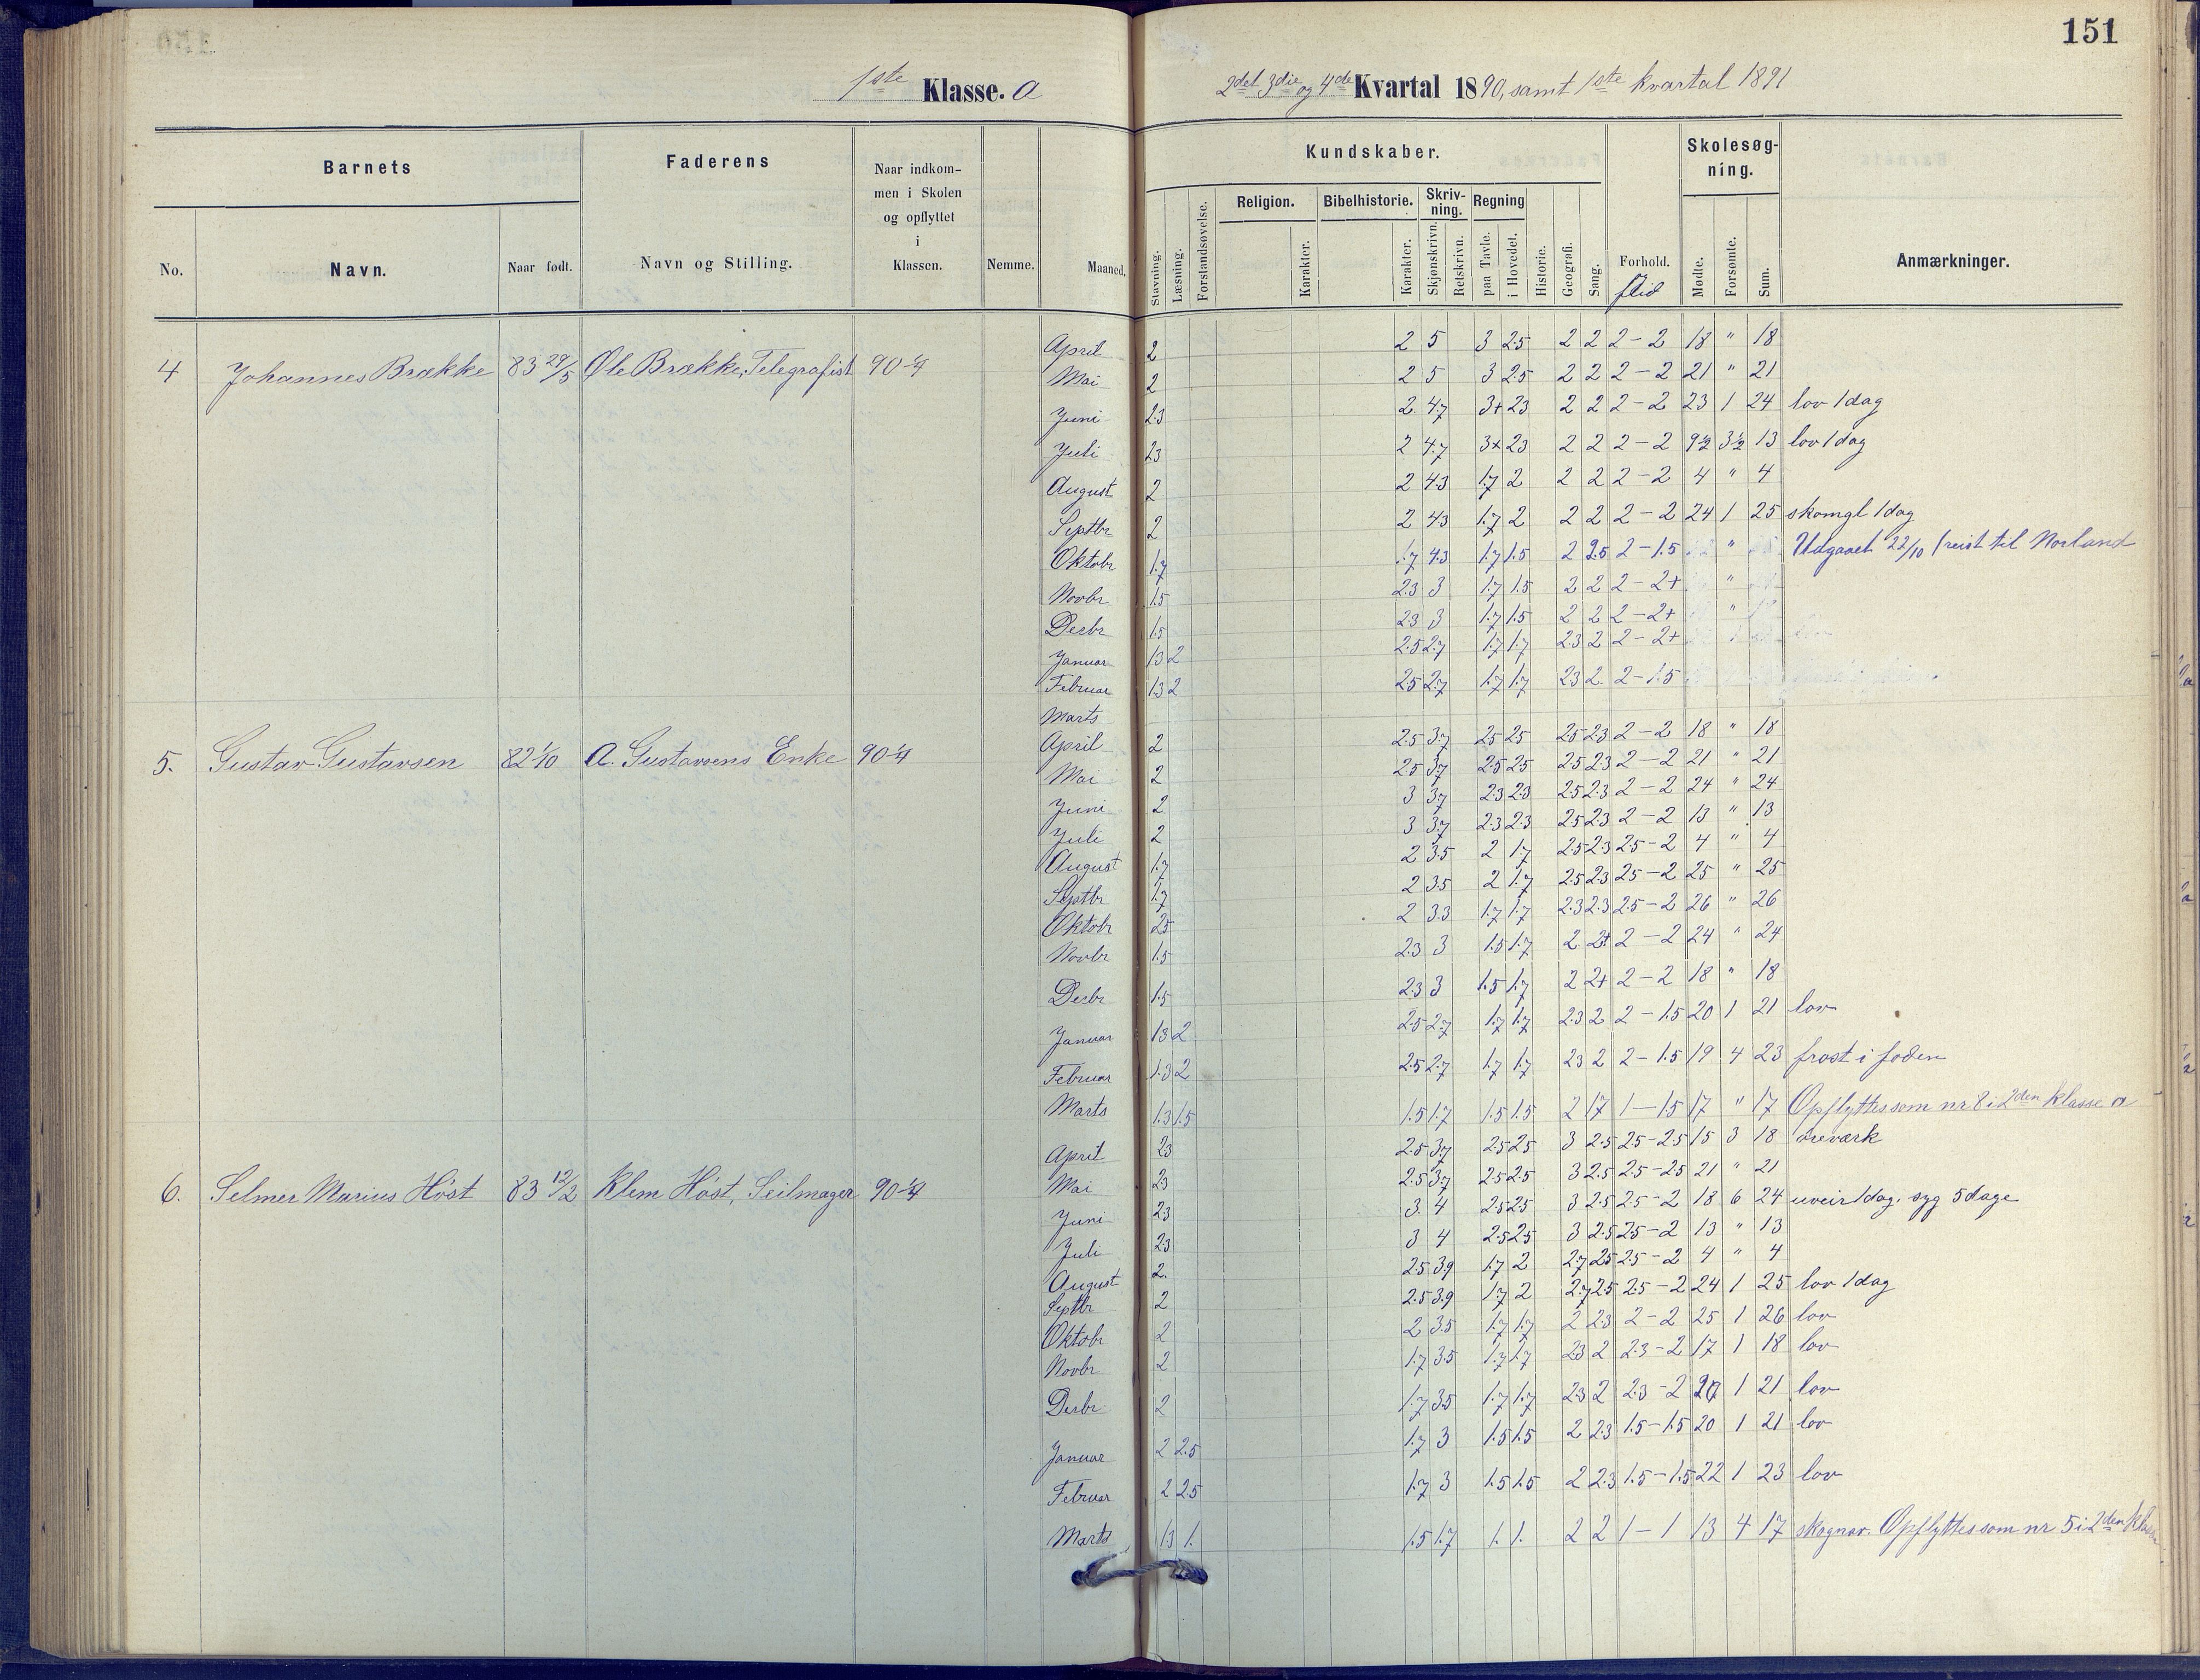 151
1ste Klasse. a
2det 3die og 4de Kvartal 1890, samt 1ste kvartal 1891
Barnets
Faderens
Naar indkom-
men i Skolen
og opflyttet
i
Klassen.
No.
Navn.
Naar født.
Navn og Stilling.
Nemme.
Maaned.
Kundskaber.
Skolesøg-
ning.
Stavning.
Læsning.
Forstandsøvelse.
Religion.
Karakter.
Bibelhistorie.
Karakter.
Skriv-
ning.
Skjønskrivn.
Retskrivn.
Regning
paa Tavle.
i Hovedet.
Historie.
Geografi.
Sang.
Forhold.
flid
Mødte.
Forsømte.
Sum.
Anmærkninger.
4 Johannes Brække 83 29/5 Ole Brække, Telegrafist 90 1/4
April 2 2 5 3 2.5 2 2 2-2 18 " 18
Mai 2 2 5 3 2.5 2 2 2-2 21 " 21
Juni 2.3 2. 4.7 3+ 2.3 2 2 2-2 23 1 24 lov 1 dag
Juli 2.3 2 4.7 3+ 2.3 2 2 2-2 9 1/2 3 1/2 13 lov 1 dag
August 2 2 4.3 1.7 2 2 2 2-2 4 " 4
Septbr 2 2 4.3 1.7 2 2 2 2-2 24 1 25 skomgl 1 dag
Oktobr 1.7 1.7 4.3 1.7 1.5 2 2.5 2-1.5 " Udgaaet 22/10 (reist til Norland
Novbr 1.5 2.3 3 1.7 1.5 2 2 2-2+ "
Decbr 1.5 2.3 3 1.7 1.5 2 2 2-2+ "
Januar 1.3 2 2.5 2.7 1.7 1.7 2.3 2 2-2+
Februar 1.3 2 2.5 2.7 1.7 1.7 2.3 2 2-1.5
Marts
5. Gustav Gustavsen 82 1/10 A. Gustavsens Enke 90 1/4
April 2 2.5 3.7 2.5 2.5 2.5 2.3 2-2 18 " 18
Mai 2 2.5 3.7 2.5 2.5 2.5 2.3 2-2 21 " 21
Juni 2 3 3.7 2.3 2.3 2.5 2.3 2-2 24 " 24
Juli 2 3 3.7 2.3 2.3 2.5 2.3 2-2 13 " 13
August 1.7 2 3.5 2 1.7 2.5 2.3 2.5-2 4 " 4
Septbr 1.7 2 3.5 2 1.7 2.5 2.3 2.5-2 25 " 25
Oktobr 2.5 2 3.3 1.7 1.7 2.3 2.3 2.5-2 26 " 26
Novbr 1.5 2.3 3 1.5 1.7 2 2+ 2-2 24 " 24
Decbr 1.5 2.3 3 1.5 1.7 2 2+ 2-2 18 " 18
Januar 1.3 2 2.5 2.7 1.7 1.7 2.3 2 2-1.5 20 1 21 lov
Februar 1.3 2 2.5 2.7 1.7 1.7 2.3 2 2-1.5 19 4 23 frost i foden
Marts 1.3 1.5 1.5 1.7 1.5 1.5 2 1.7 1-1.5 17 " 17 Opflyttes som nr 8 i 2den klasse a
6. Selmer Marius Höst 83 12/2 Klem Höst, Seilmager 90 1/4
April 2.3 2.5 3.7 2.5 2.5 3 2.5 2.5-2.5 15 3 18 öreværk
Mai 2.3 2.5 3.7 2.5 2.5 3 2.5 2.5-2.5 21 " 21
Juni 2.3 3. 4 2.5 2.5 3 2.5 2.5-2 18 6 24 uveir 1 dag. syg 5 dage
Juli 2.3 3 4 2.5 2.5 3 2.5 2.5-2 13 " 13
August 2. 2.5 3.9 1.7 2 2.7 2.5 2.5-2 4 " 4
Septbr 2 2.5 3.9 1.7 2 2.7 2.5 2.5-2 24 1 25 lov 1 dag
Oktobr 2 2 3.5 1.7 1.7 2 2.3 2-2 25 1 26 lov
Novbr 2 1.7 3.5 1.7 1.7 2.3 2 2.3-2 17 1 18 lov
Decbr 2 1.7 3.5 1.7 1.7 2.3 2 2.3-2 20 1 21 lov
Januar 2 2.5 1.7 3 1.5 1.5 2 2.3 1.5-1.5 20 1 21 lov
Februar 2 2.5 1.7 3 1.5 1.5 2 2.3 1.5-1.5 22 1 23 lov
Marts 1.3 1. 1.5 1.7 1. 1. 2 2 1-1 13 4 17 Opflyttes som nr 5 i 2den klasse